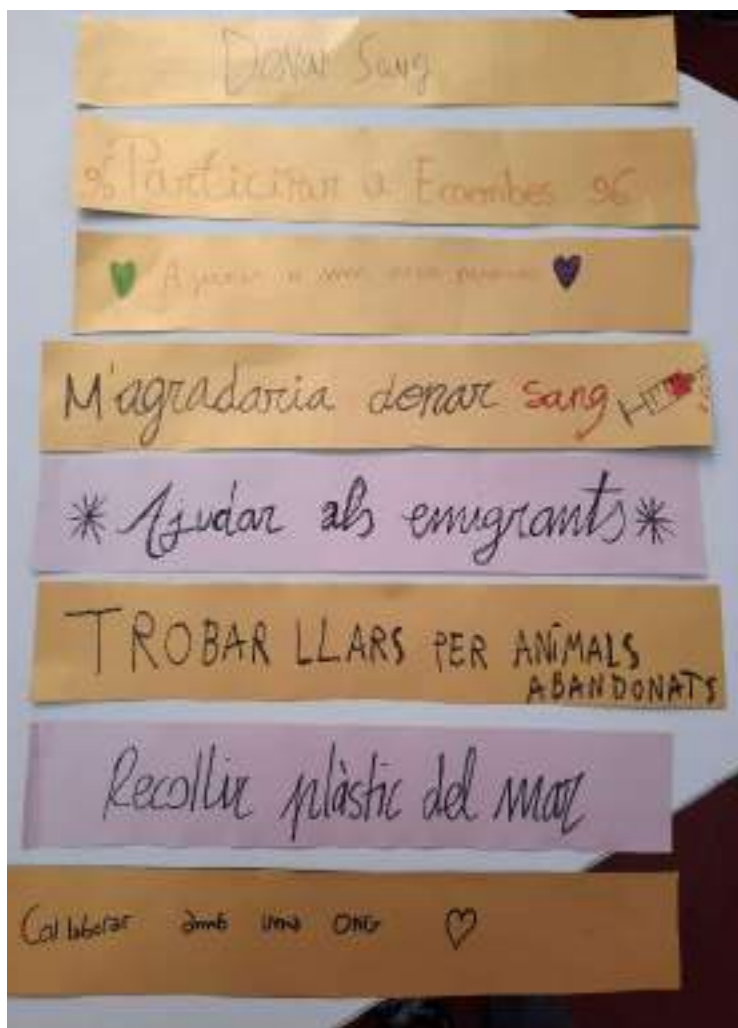 Donar Sang
Participar a
M'agradaria donar sang
Ajudar als emigrants
TROBAR LLARS PER ANIMALS
ABANDONATS
Recollir plàstic del mar
Col·laborar amb una ONG